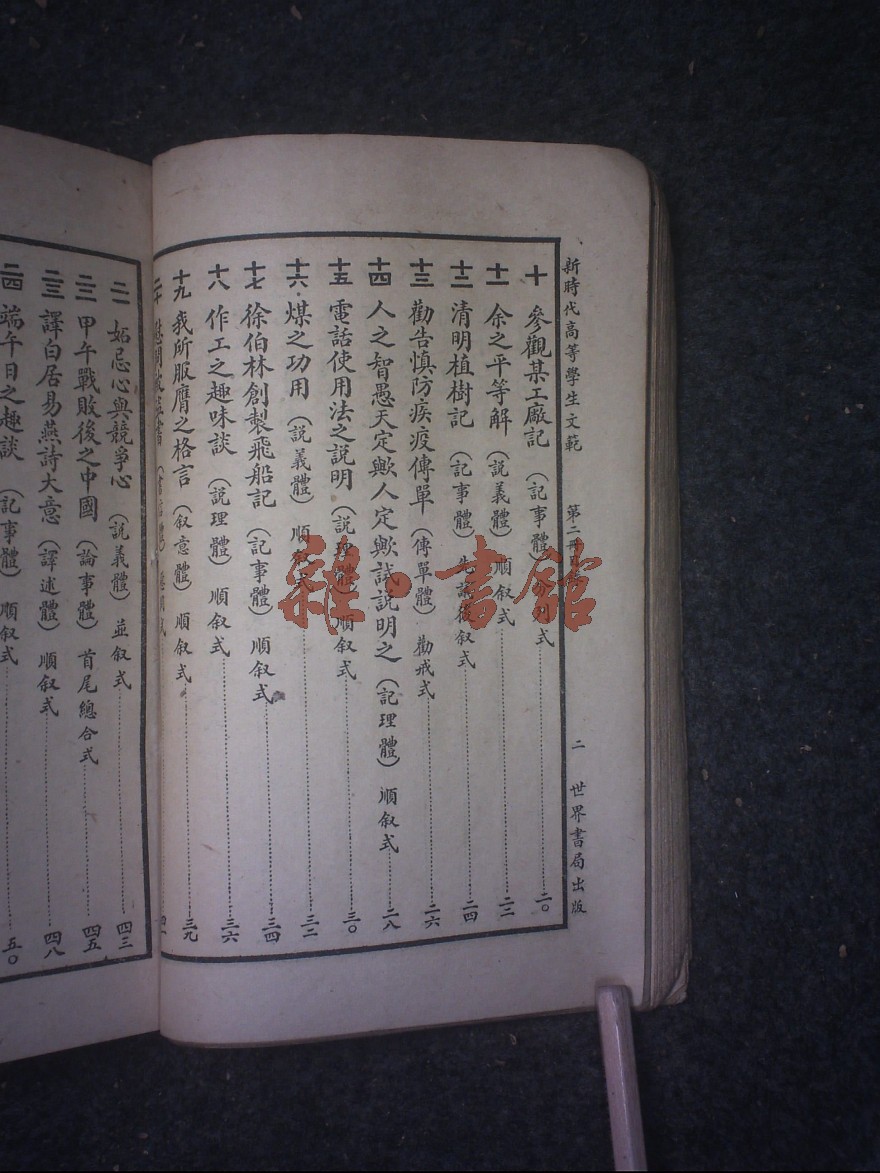 新時代高等學生文範 第二冊 二 世界書局出版
十 參觀某工廠記（記事體） 式 二〇
十一 余之平等解（說義體）順叙式 二二
十二 清明植樹記（記事體）先 後叙式 二四
十三 勸告慎防疾疫傳單（傳單體）勸戒式 二六
十四 人之智愚天定歟人定歟試說明之（記理體）順叙式 二八
十五 電話使用法之說明（說理體）順叙式 三〇
十六 煤之功用（說義體）順叙式 三二
十七 徐伯林創製飛船記（記事體）順叙式 三四
十八 作工之趣味談（說理體）順叙式 三六
十九 我所服膺之格言（叙意體）順叙式 三九
二十
二一 妬忌心與競爭心（說義體）並叙式 四三
二二 甲午戰敗後之中國（論事體）首尾總合式 四五
二三 譯白居易燕詩大意（譯述體）順叙式 四八
二四 端午日之趣談（記事體）順叙式 五〇
雜·書館